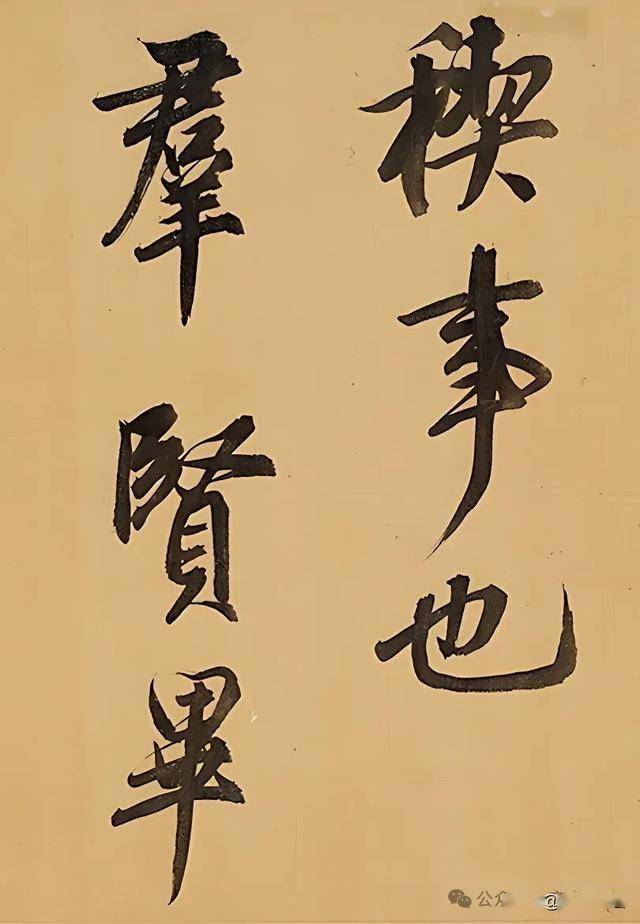 禊事也
羣賢畢
公众
@